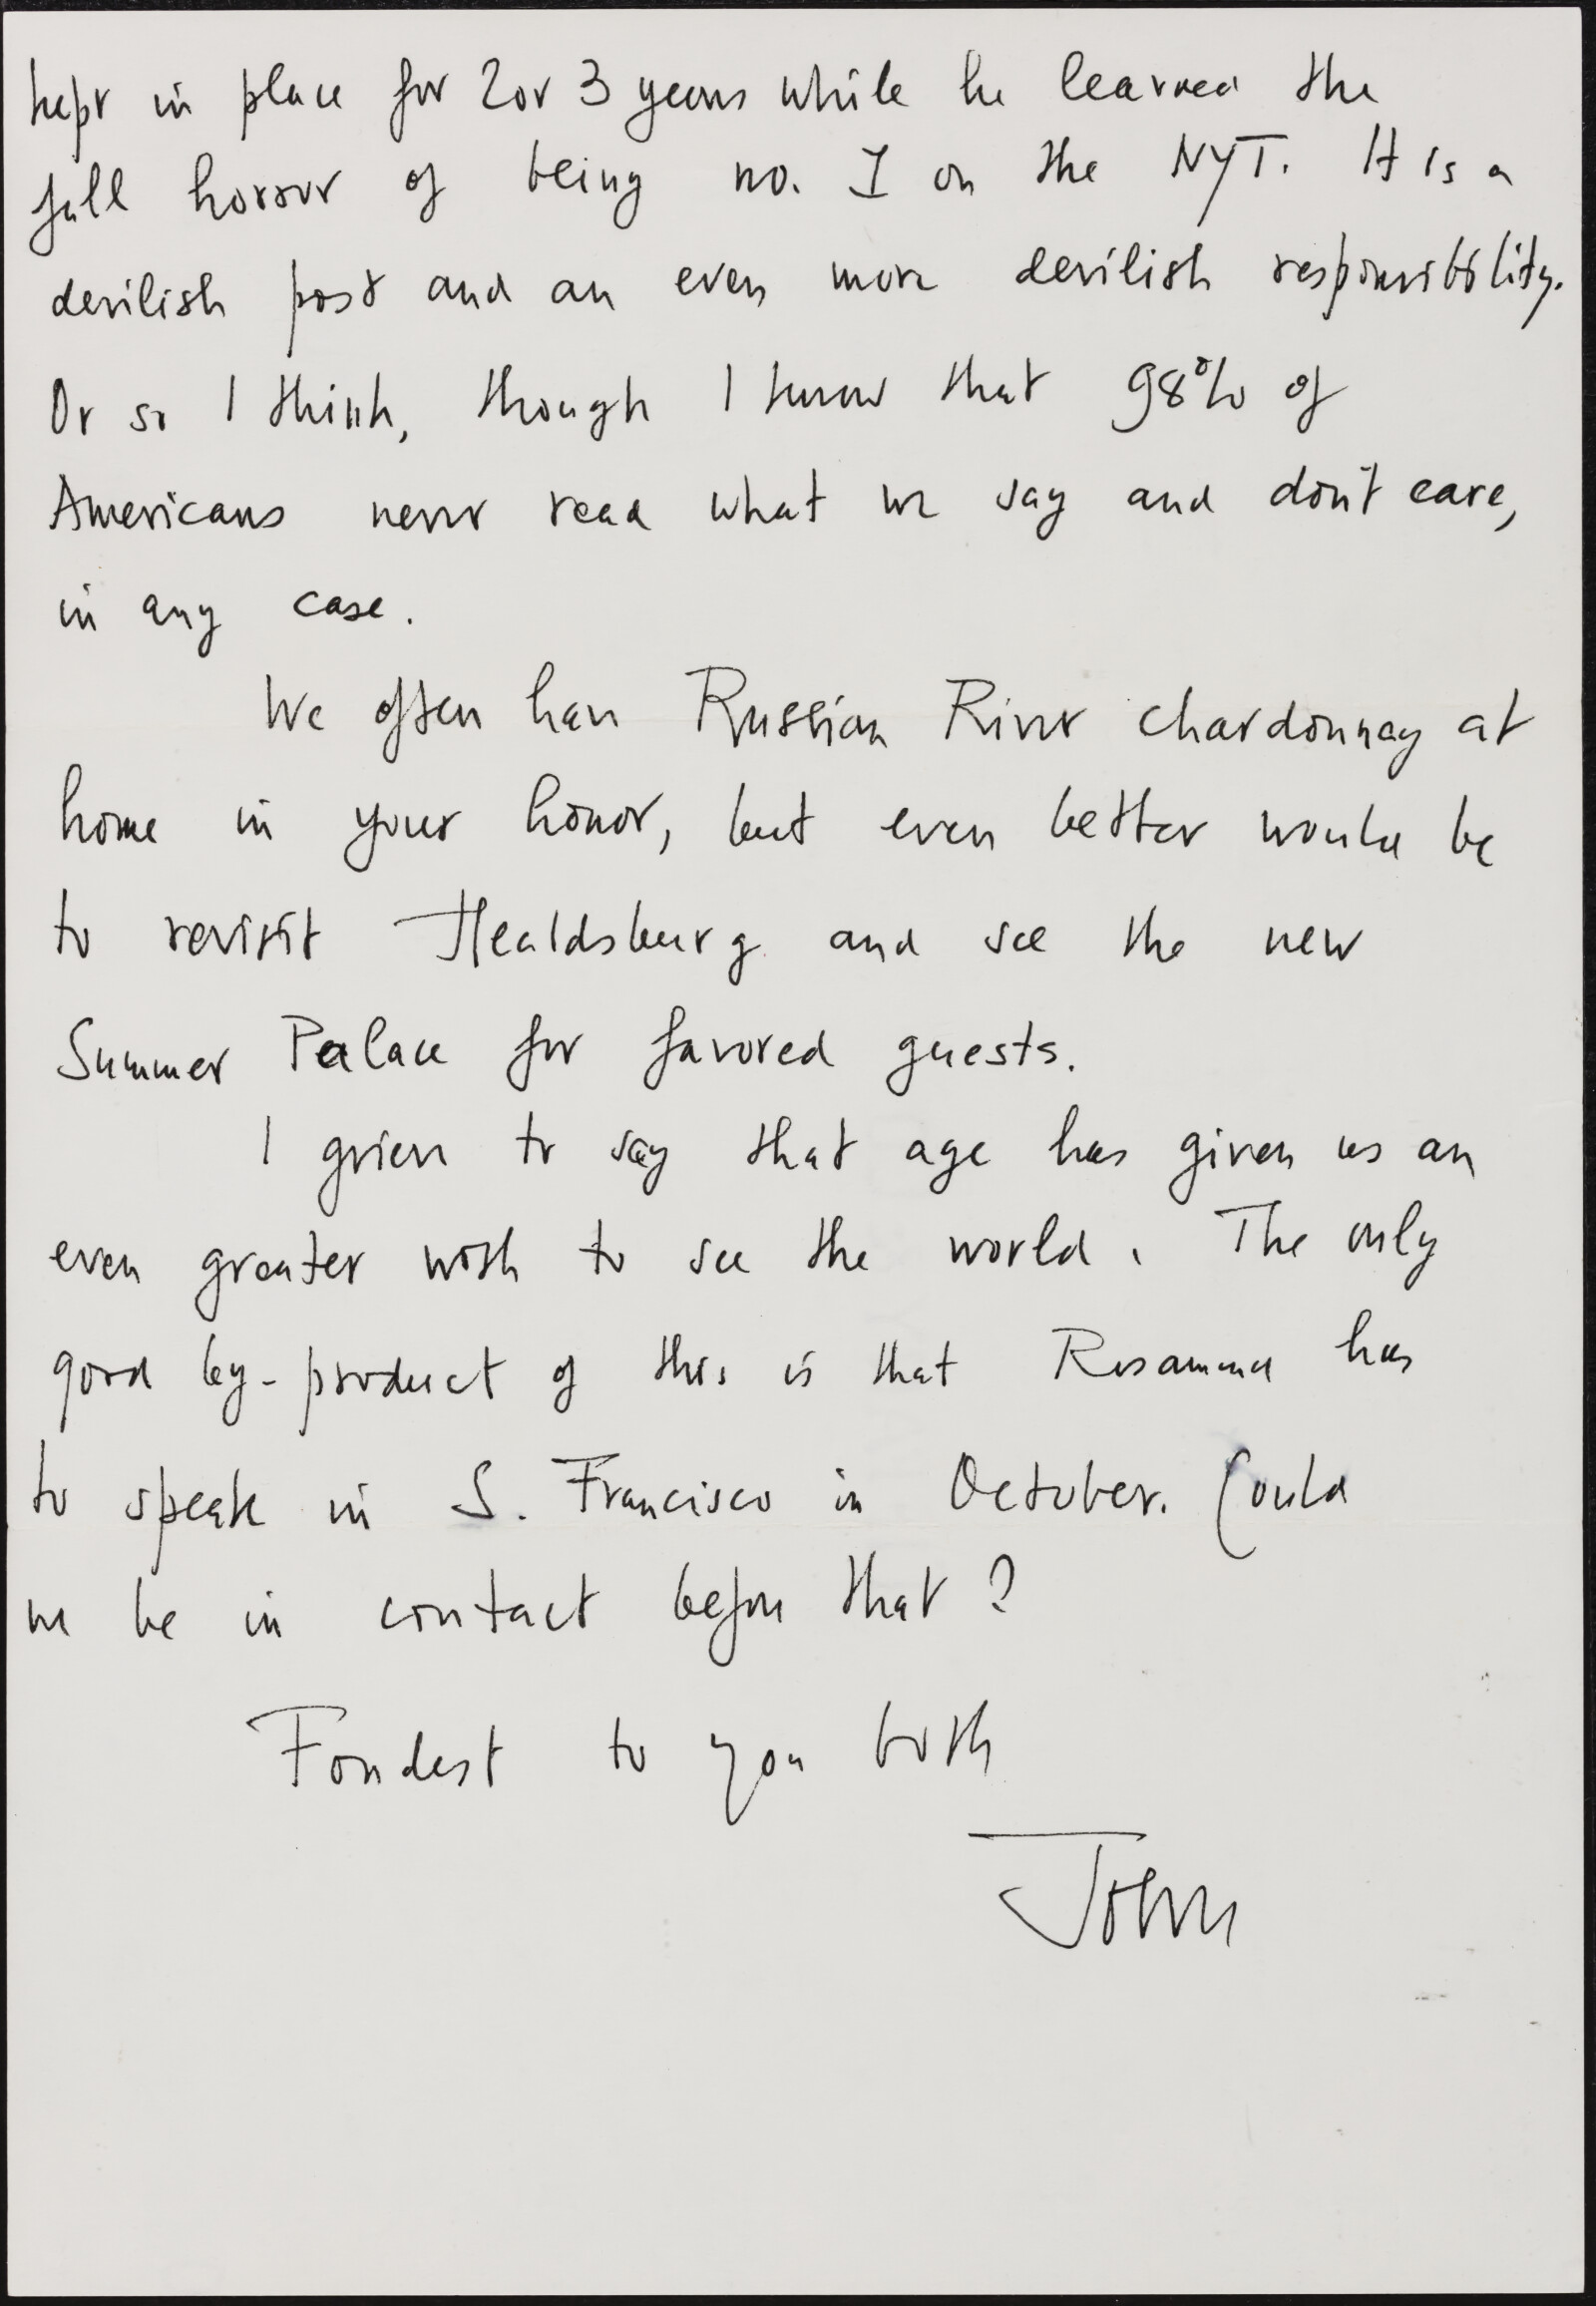 kept in place for 2 or 3 years while he learned the
full horror of being no. I on the NYT. It is a
devilish post and an even more devilish responsibility.
Or so I think, though I know that 98% of
Americans never read what we say and don't care,
in any case.
We often have Russian River chardonnay at
home in your honor, but even better would be
to revisit Healdsburg and see the new
Summer Palace for favored guests.
I grieve to say that age has given us an
even greater wish to see the world. The only
good by-product of this is that Rosamund has
to speak in S. Francisco in October. Could
we be in contact before that?
Fondest to you both
John